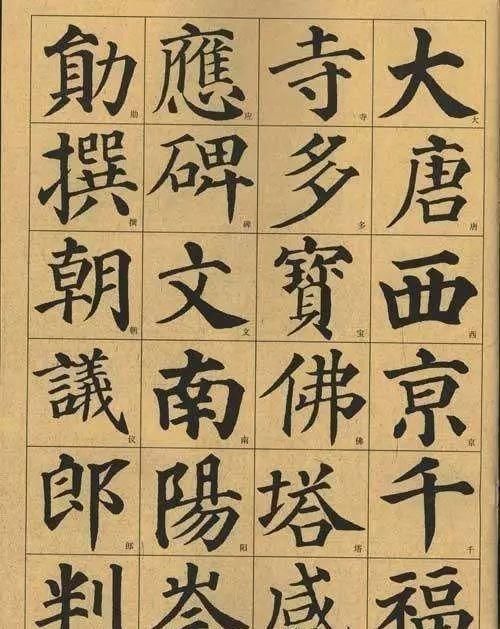 大唐西亰千福
大唐西京千
寺多寶佛塔感
寺多宝佛塔
應碑文南陽岑
应碑文南阳
勛撰朝議郎判
勋撰朝议郎